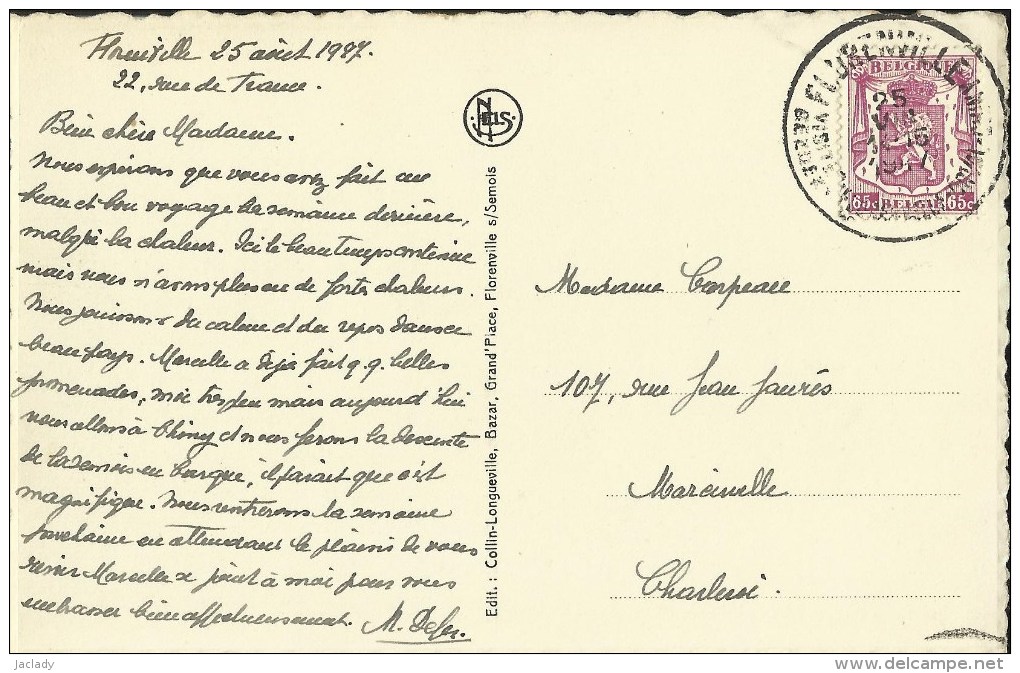 Florenville 25 août 1947.
22, rue de France.
Bien chère Madame.
Nous espérons que vous avez fait un
beau et bon voyage la semaine dernière,
malgré la chaleur. Ici le beau temps continue
mais nous n'avons plus eu de fortes chaleurs.
Nous jouissons du calme et du repos dans ce
beau pays. Marcelle a déjà fait q.q. belles
promenades, moi très peu mais aujourd'hui
nous allons à Chiny et nous ferons la descente
de la Semois en barque, il parait que c'est
magnifique. Nous rentrerons la semaine
prochaine en attendant le plaisir de vous
revoir Marcelle se joint à moi pour vous
embrasser bien affectueusement.
M.
NELS
Edit. : Collin-Longueville, Bazar, Grand'Place, Florenville s/Semois
FLORENVILLE
25
BELGIE
BELGIQUE
65c 65c
Madame Carpeau
107, rue Jean Jaurès
Marcinelle
Charleroi
jaclady
www.delcampe.net